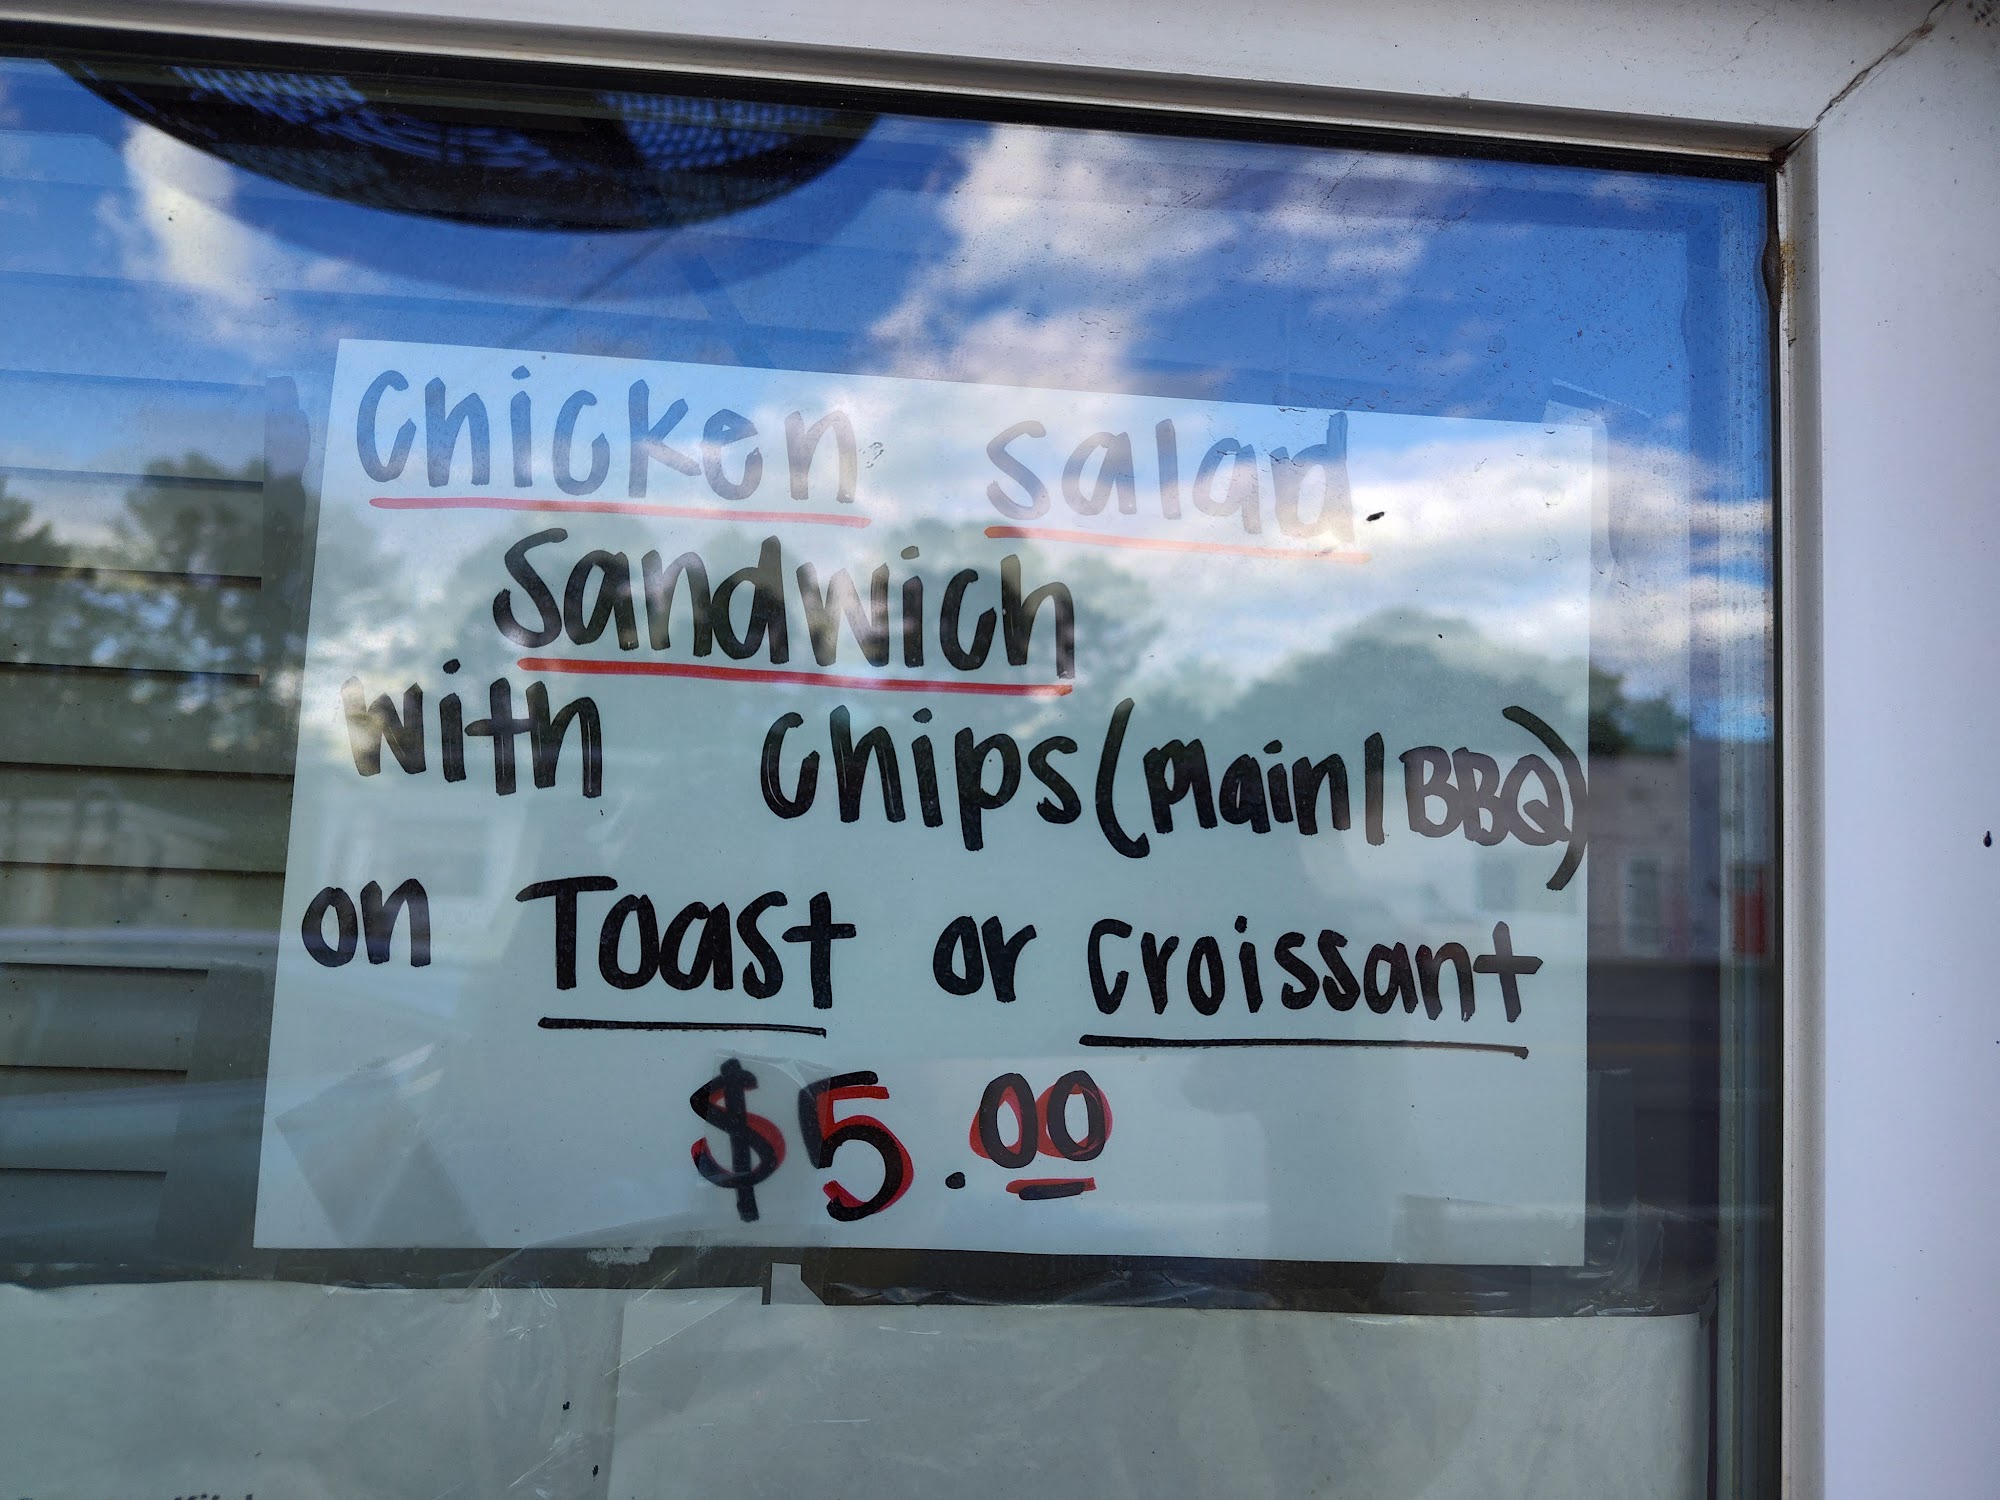 chicken salad
sandwich
with chips (Plain/BBQ)
on Toast or croissant
$5.00